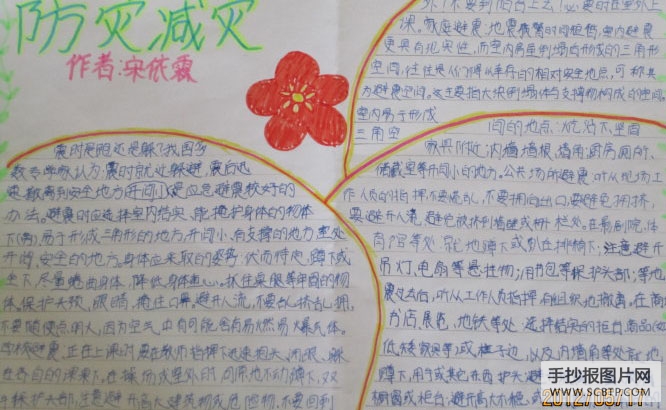 防灾减灾
作者:宋依霖
震时是跑还是躲?我国多
数专家认为:震时就近躲避,震后迅
速撤离到安全地方,开间小是应急避震较好的
办法。避震时应选择室内结实、能掩护身体的物体
下(旁)易于形成三角形的地方,开间小、有支撑的地方,室外
开阔、安全的地方。身体应采取的姿势:伏而待定,蹲下或
坐下,尽量蜷曲身体,降低身体重心。抓住桌腿等牢固的物
体。保护头颈、眼睛,掩住口鼻,避开人流,不要乱挤乱拥,
不要随便点明火,因为空气中有可能含有易燃易爆气体。
学校避震,正在上课时,要在教师指挥下迅速抱头、闭眼、躲
在各自的课桌下,在操场或室外时,可原地不动蹲下,双
手保护头部,注意避开高大建筑物或危险物,不要回到
课。家庭避震,地震预警时间短暂,室内避震
更具有现实性,而室内房屋倒塌后形成的三角形
空间,往往是人们得以幸存的相对安全地点,可称其
为避震空间。这主要指大块倒塌体与支撑物构成的空间。
室内易于形成
三角空 间的地点:炕沿下,坚固
家具附近;内墙墙根、墙角;厨房、厕所、
储藏室等开间小的地方。公共场所避震,听从现场工
作人员的指挥,不要慌乱,不要拥向出口,要避免拥挤,
要避开人流,避免被挤到墙壁或栅栏处。在影剧院、体
育馆等处:就地蹲下或趴在排椅下;注意避开
吊灯、电扇等悬挂物;用书包等保护头部;等地
震过去后,听从工作人员指挥,有组织地撤离,在商
书店、展览、地铁等处:选择结实的柜台、商品(如
低矮家具等)或柱子边,以及内墙角等处就地
蹲下,用手或其它东西护头
橱窗或柜台;避开高大不稳
2012/05/11
手抄报图片网
WWW.SCBTP.COM